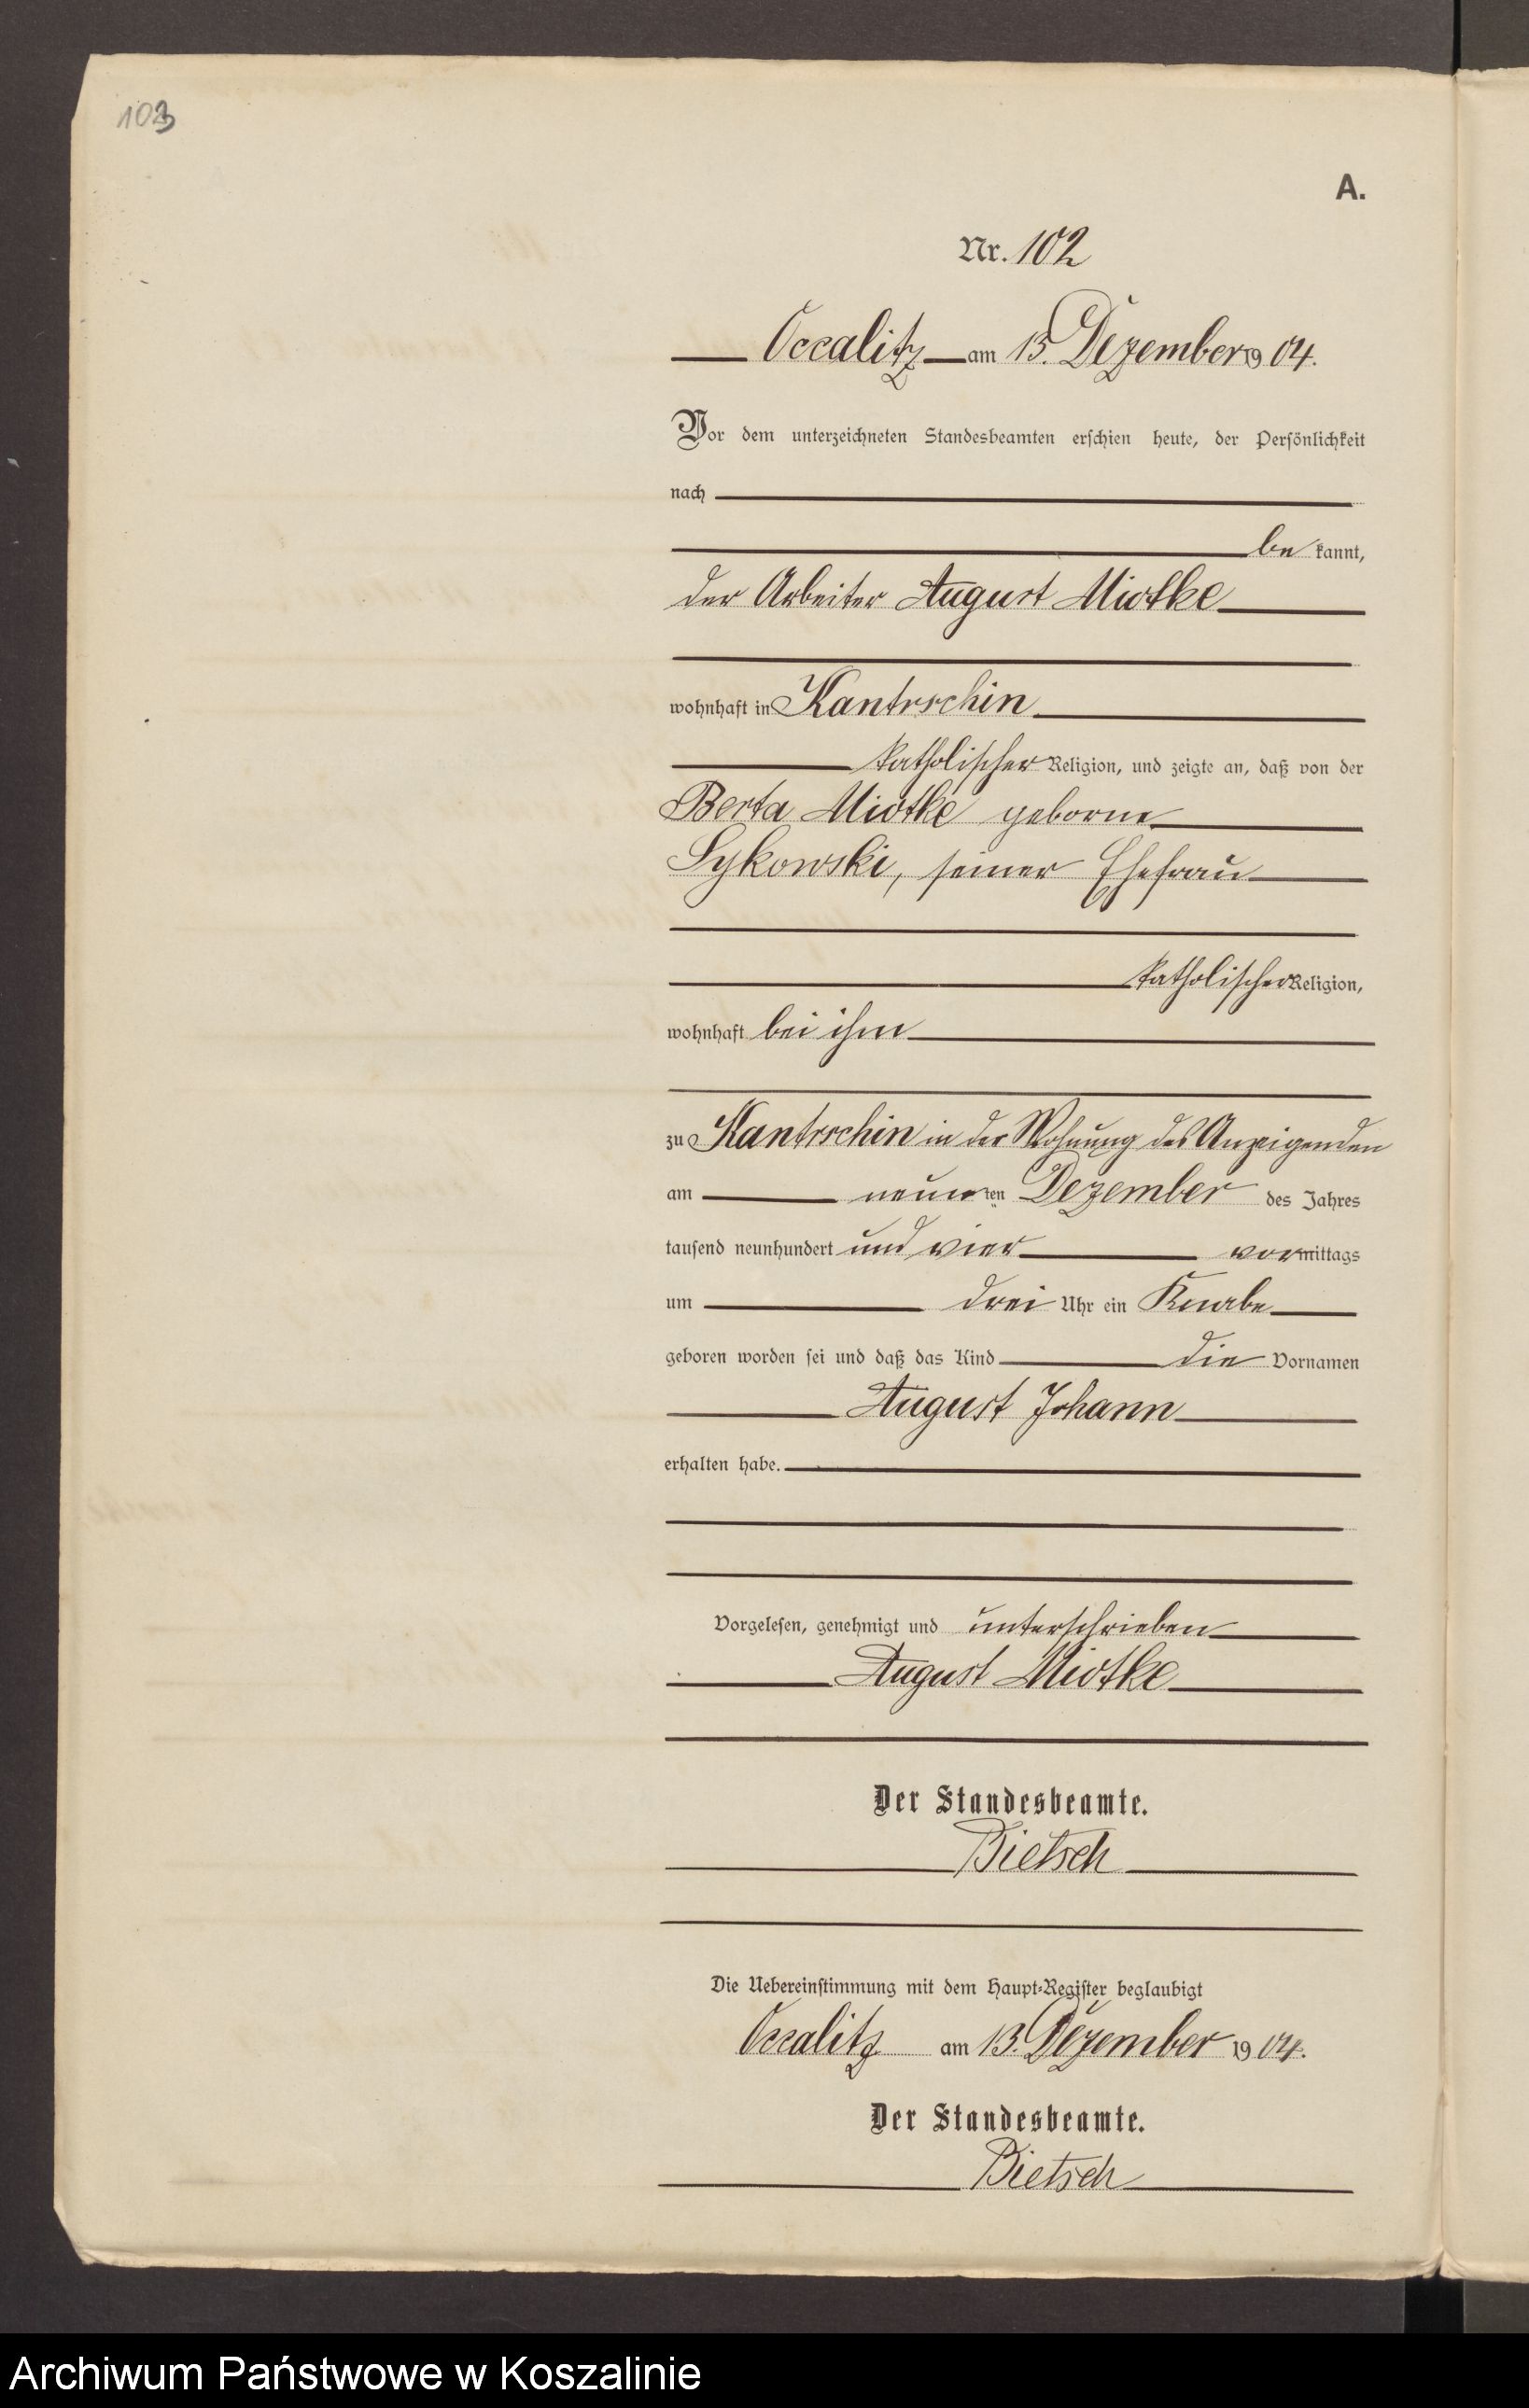 103
A.
Nr. 102
Occalitz am 13. Dezember 19 04.
Vor dem unterzeichneten Standesbeamten erschien heute, der Persönlichkeit
nach
be kannt,
der Arbeiter August Miotke
wohnhaft in Kantrschin
katholischer Religion, und zeigte an, daß von der
Berta Miotke geborne
Sykowski, seiner Ehefrau
katholischer Religion,
wohnhaft bei ihm
zu Kantrschin in der Wohnung des Anzeigenden
am neunten Dezember des Jahres
tausend neunhundert und vier vormittags
um drei Uhr ein Knabe
geboren worden sei und daß das Kind die Vornamen
August Johann
erhalten habe.
Vorgelesen, genehmigt und unterschrieben
August Miotke
Der Standesbeamte.
Bietsch
Die Uebereinstimmung mit dem Haupt-Register beglaubigt
Occalitz am 13. Dezember 19 04.
Der Standesbeamte.
Bietsch
Archiwum Państwowe w Koszalinie